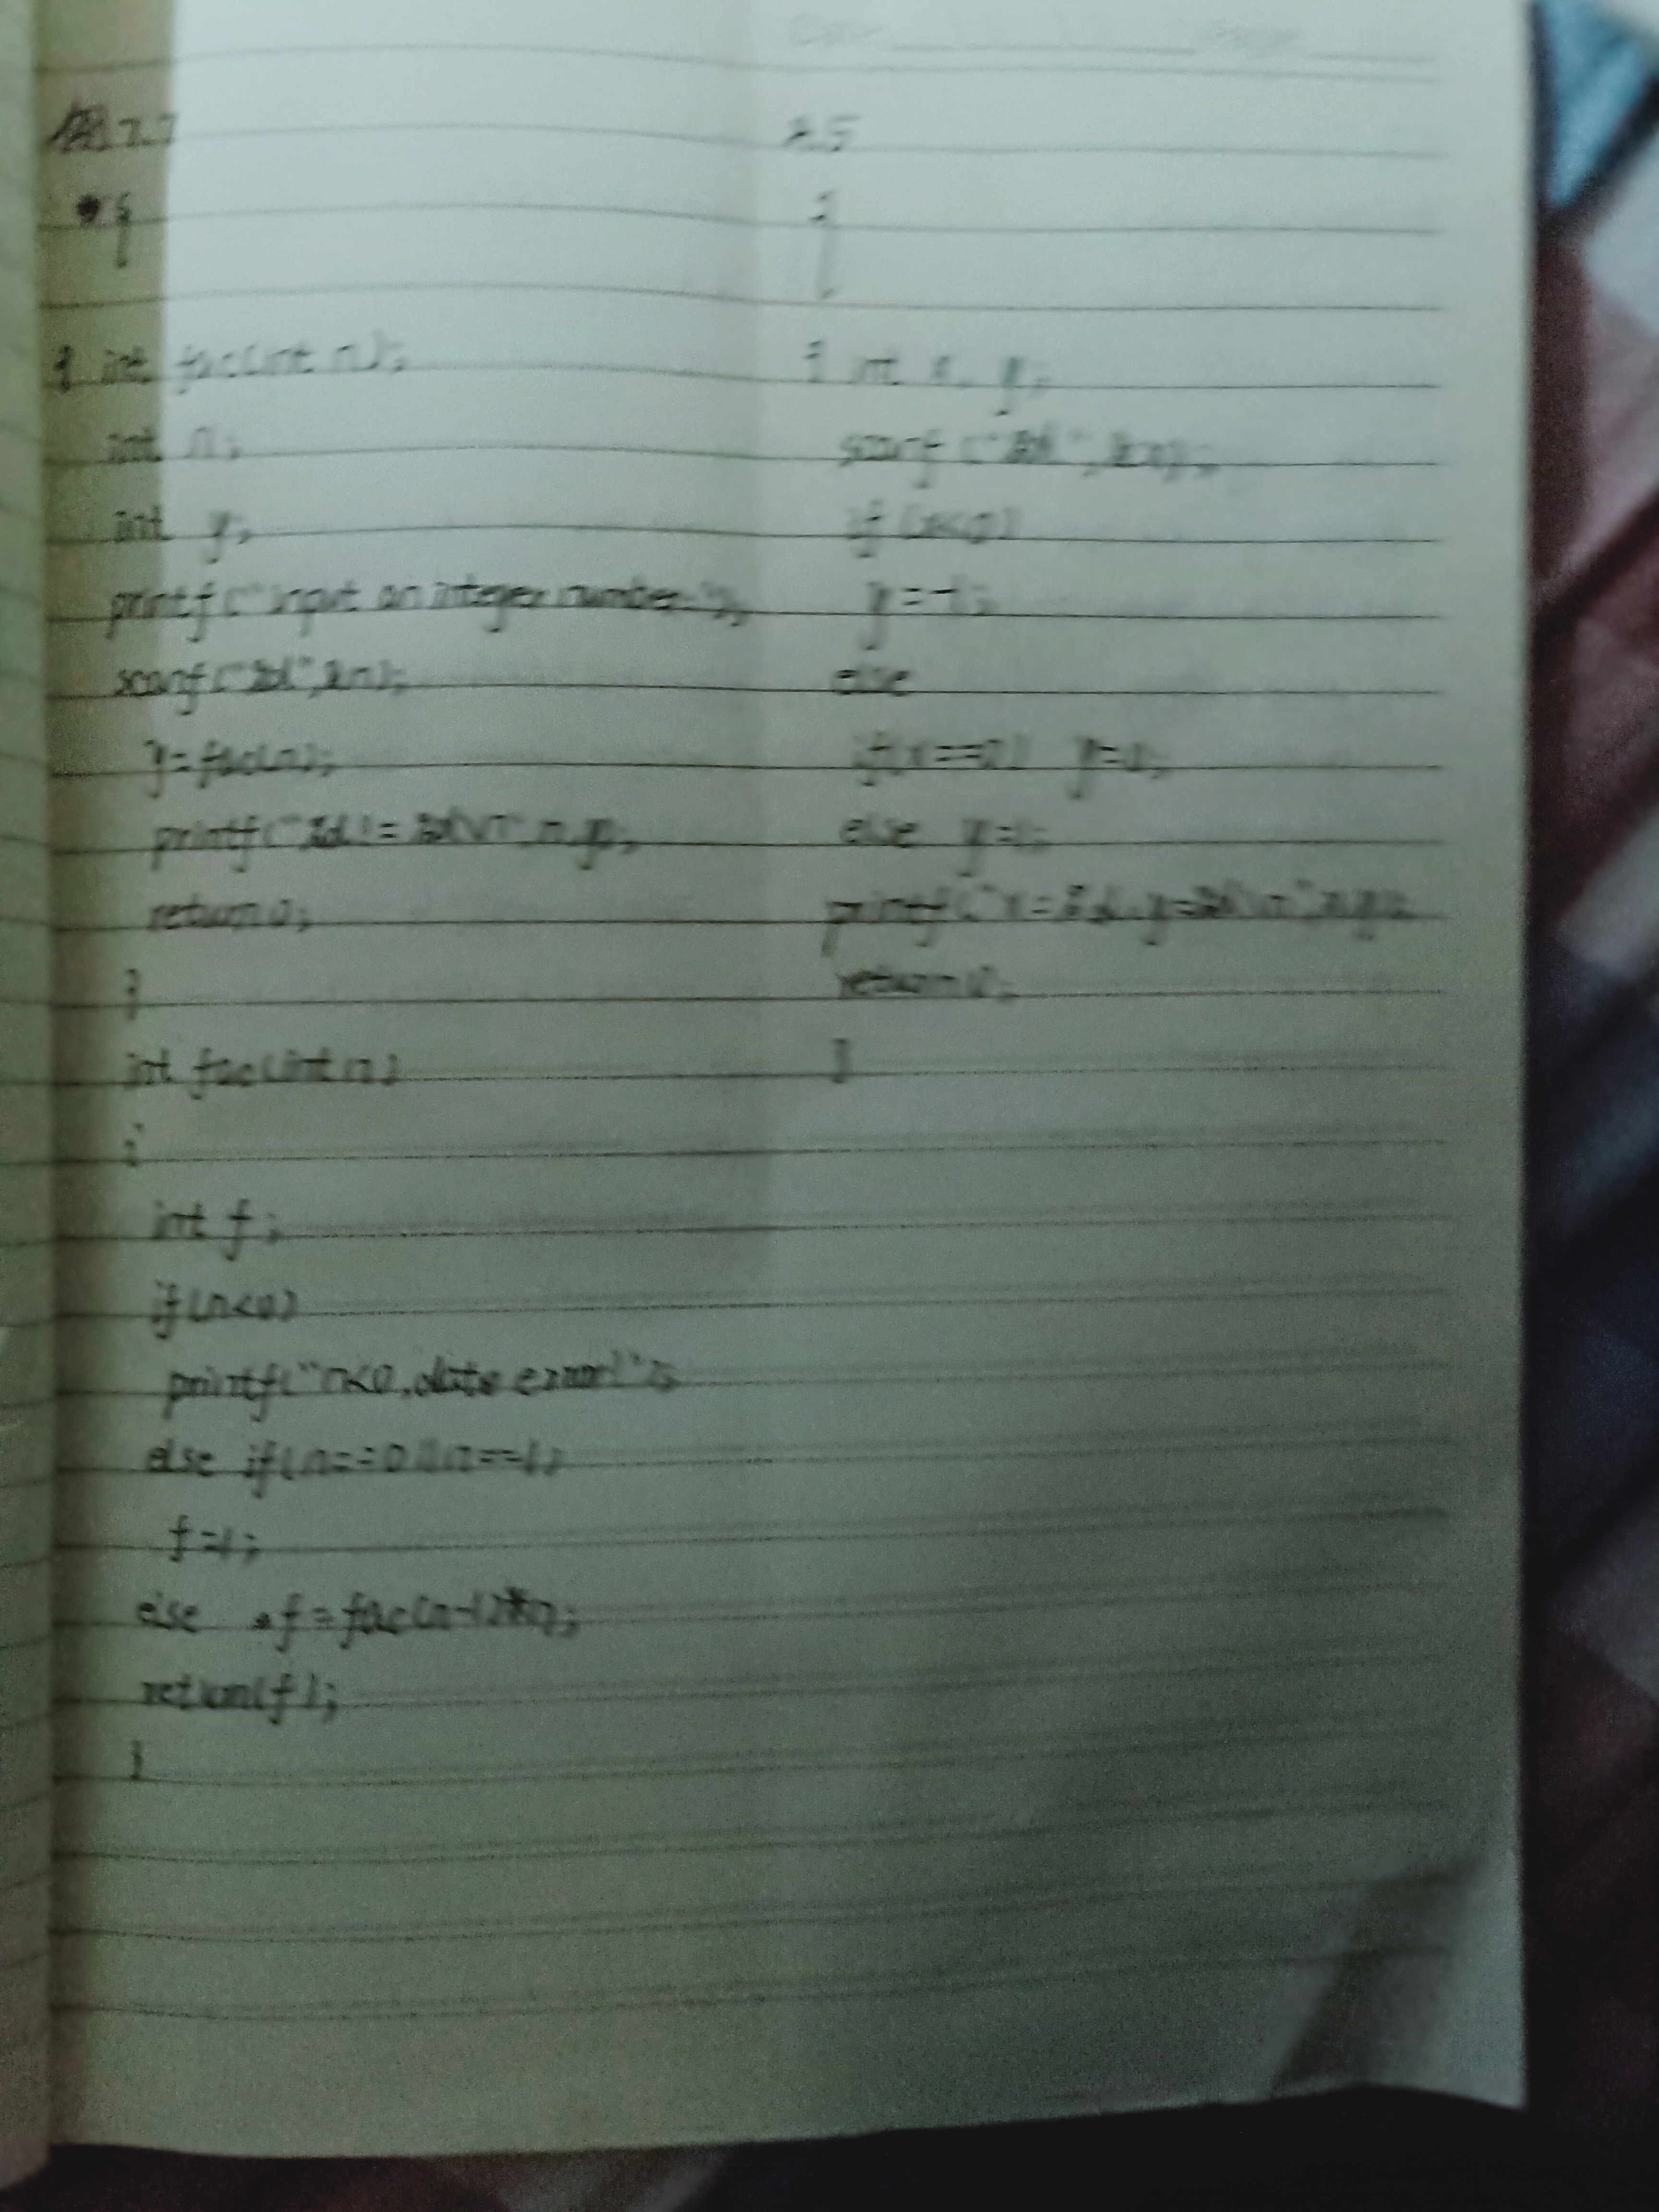 例7.7
{
{ int fac(int n);
int n;
int y;
printf("input an integer number:");
scanf("%d",&n);
y=fac(n);
printf("%d!=%d\n",n,y);
return 0;
}
int fac(int n)
{
int f;
if(n<0)
printf("n<0,data error!");
else if(n==0||n==1)
f=1;
else f=fac(n-1)*n;
return(f);
}
{
{ int x, y;
scanf("%d",&x);
if(x<0)
y=-1;
else
if(x==0) y=0;
else y=1;
printf("x=%d,y=%d\n",x,y);
return 0;
}